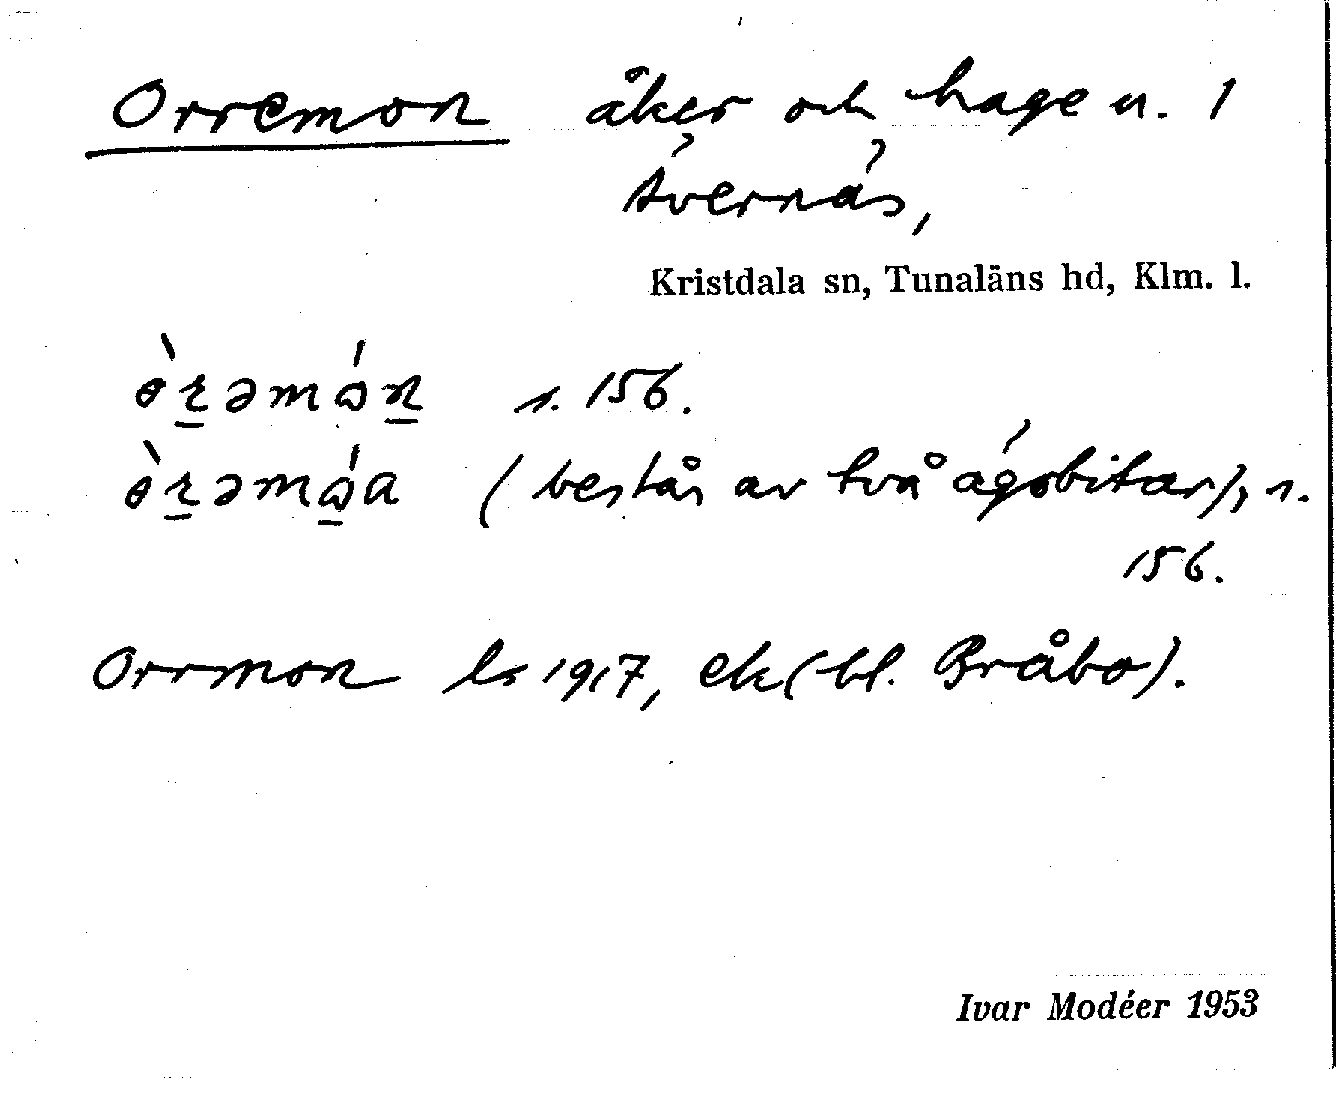 Orremon åker och hage u. 1
Ávernäs,
Kristdala sn, Tunaläns hd, Klm. l.
s. 156.
(består av två ägobitar), s.
156.
Orrmon ls 1917, ek (bl. Bråbo).
Ivar Modéer 1953